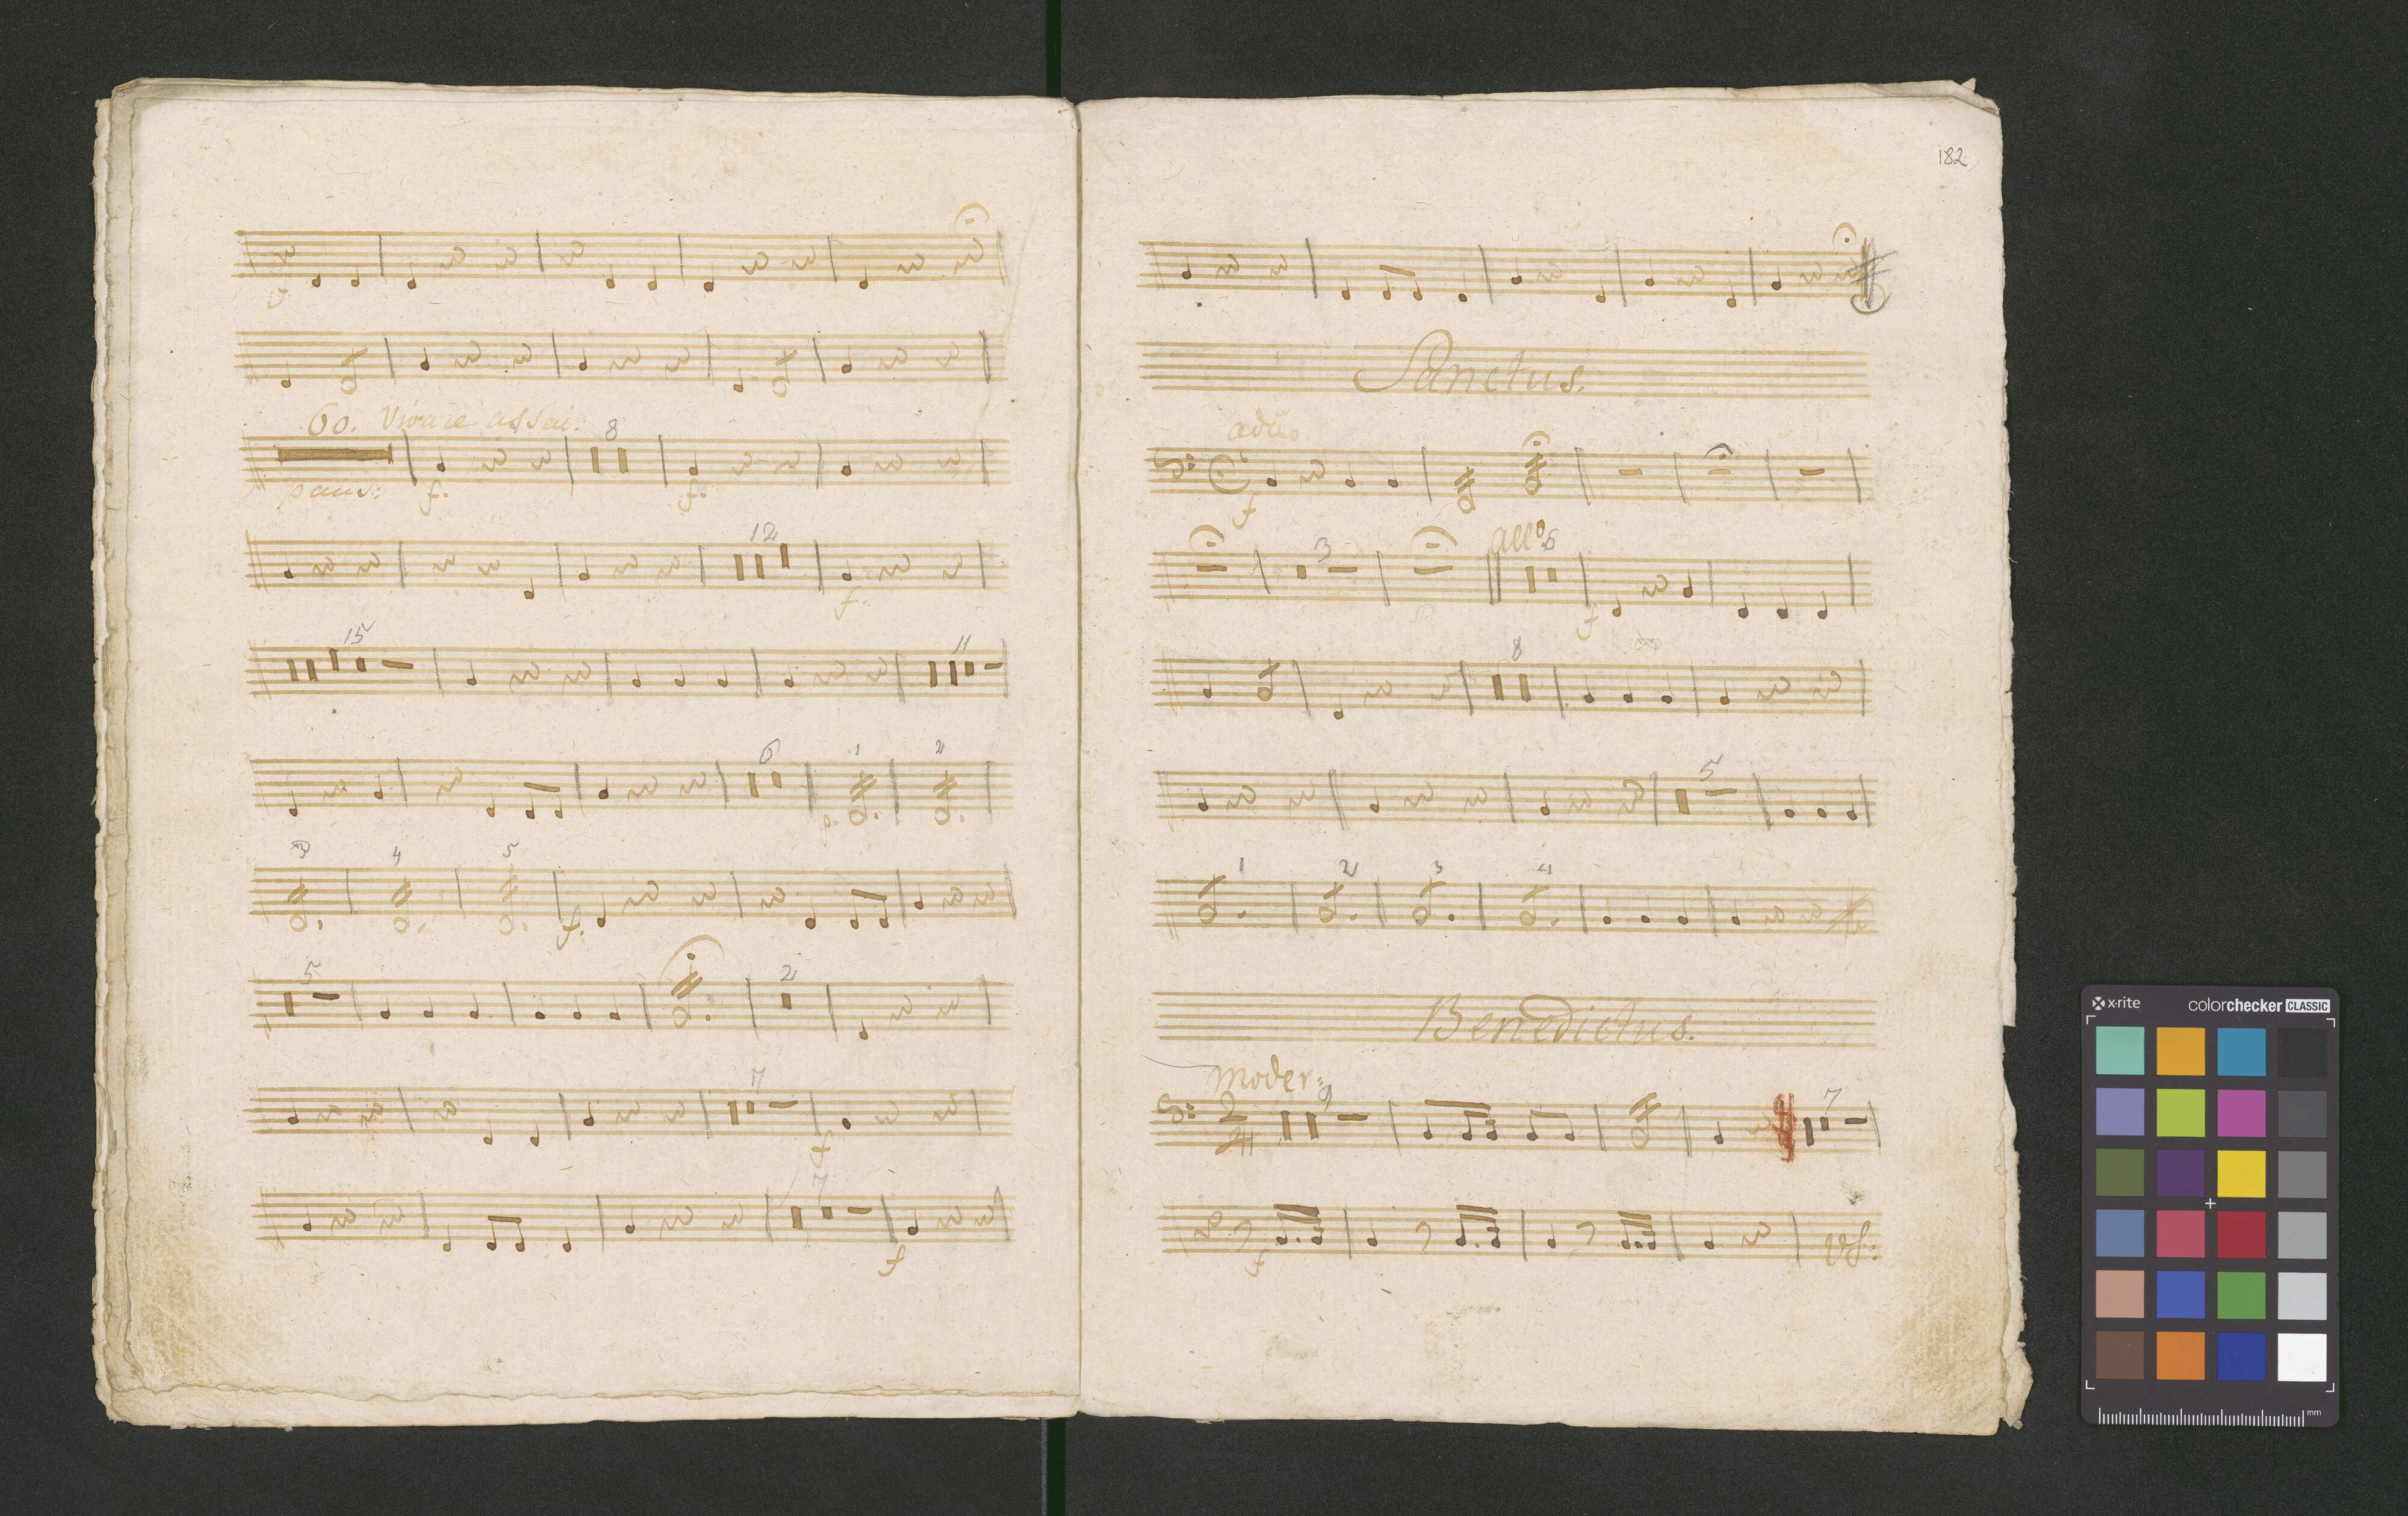 f
60. Vivace assai. 8
paus: f. f.
12
f.
15
11
6 1 2
p.
3 4 5
f.
5 2
7
f
7
f
182
Sanctus.
adio
f
3 allo 6
f
8
5
1 2 3 4
Benedictus.
Moder:
2 9 7
f
VS:
x-rite colorchecker CLASSIC
mm